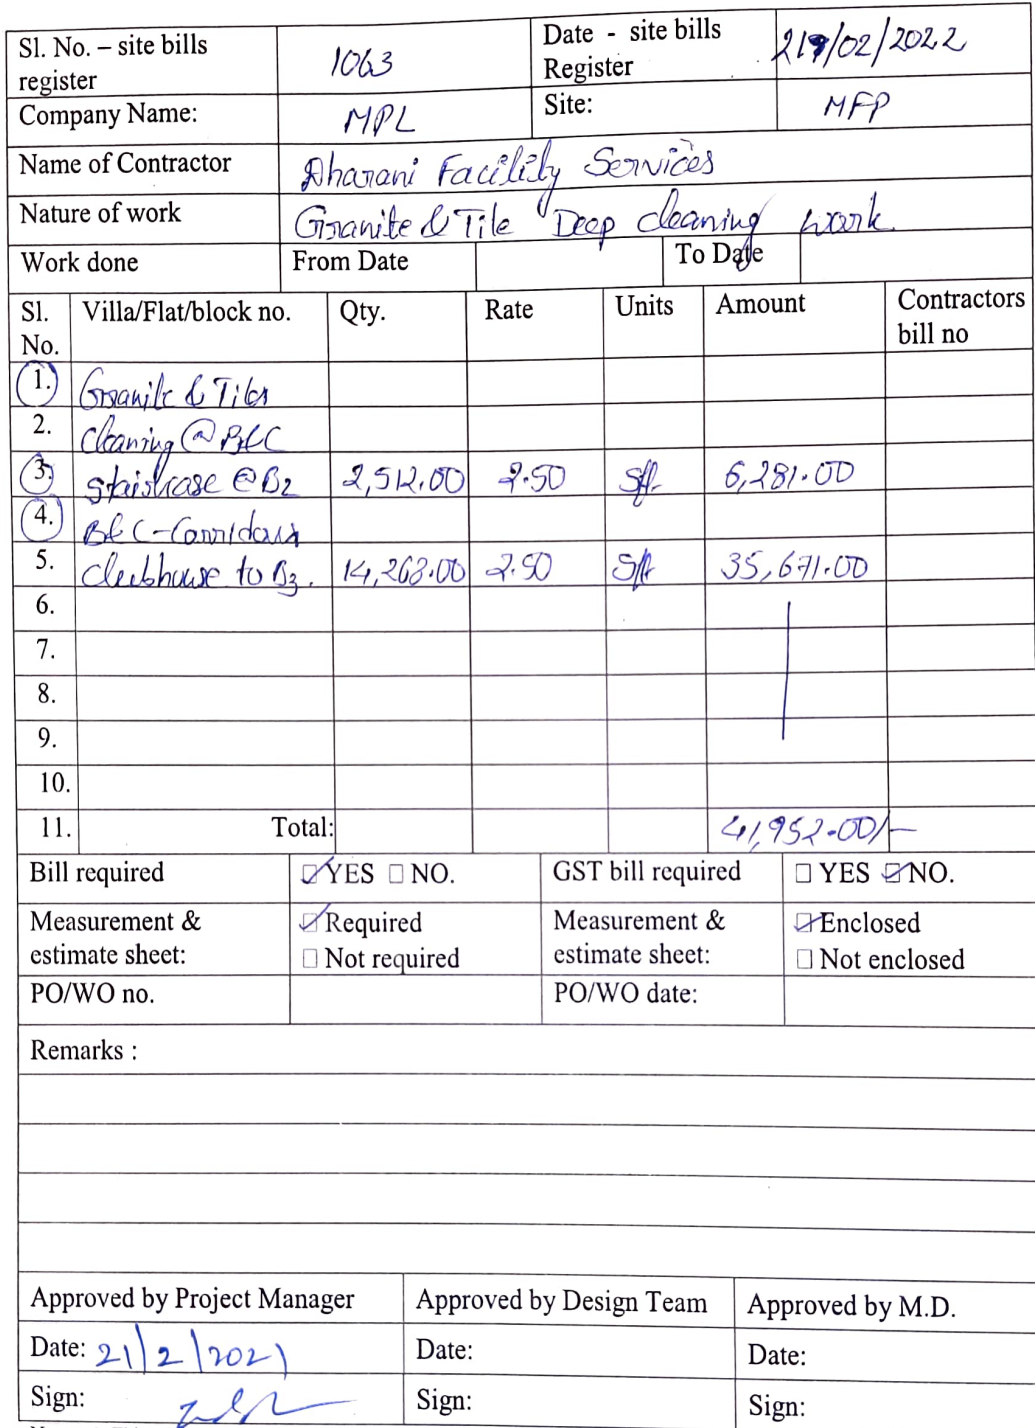 Sl. No. – site bills register 1063 Date - site bills Register 21/02/2022
Company Name: MPL Site: MFP
Name of Contractor Dharani Facility Services
Nature of work Granite & Tile Deep cleaning work
Work done From Date To Date
Sl. No. Villa/Flat/block no. Qty. Rate Units Amount Contractors bill no
1. Granite & Tiles
2. Cleaning @ B&C
3. Staircase @ B2 2,512.00 2.50 Sft 6,281.00
4. B&C - Corridors
5. Clubhouse to B3. 14,268.00 2.50 Sft 35,671.00
6.
7.
8.
9.
10.
11. Total: 41,952.00/-
Bill required YES NO. GST bill required YES NO.
Measurement & estimate sheet: Required Not required Measurement & estimate sheet: Enclosed Not enclosed
PO/WO no. PO/WO date:
Remarks :
Approved by Project Manager Approved by Design Team Approved by M.D.
Date: 21/2/2021 Date: Date:
Sign: Sign: Sign: